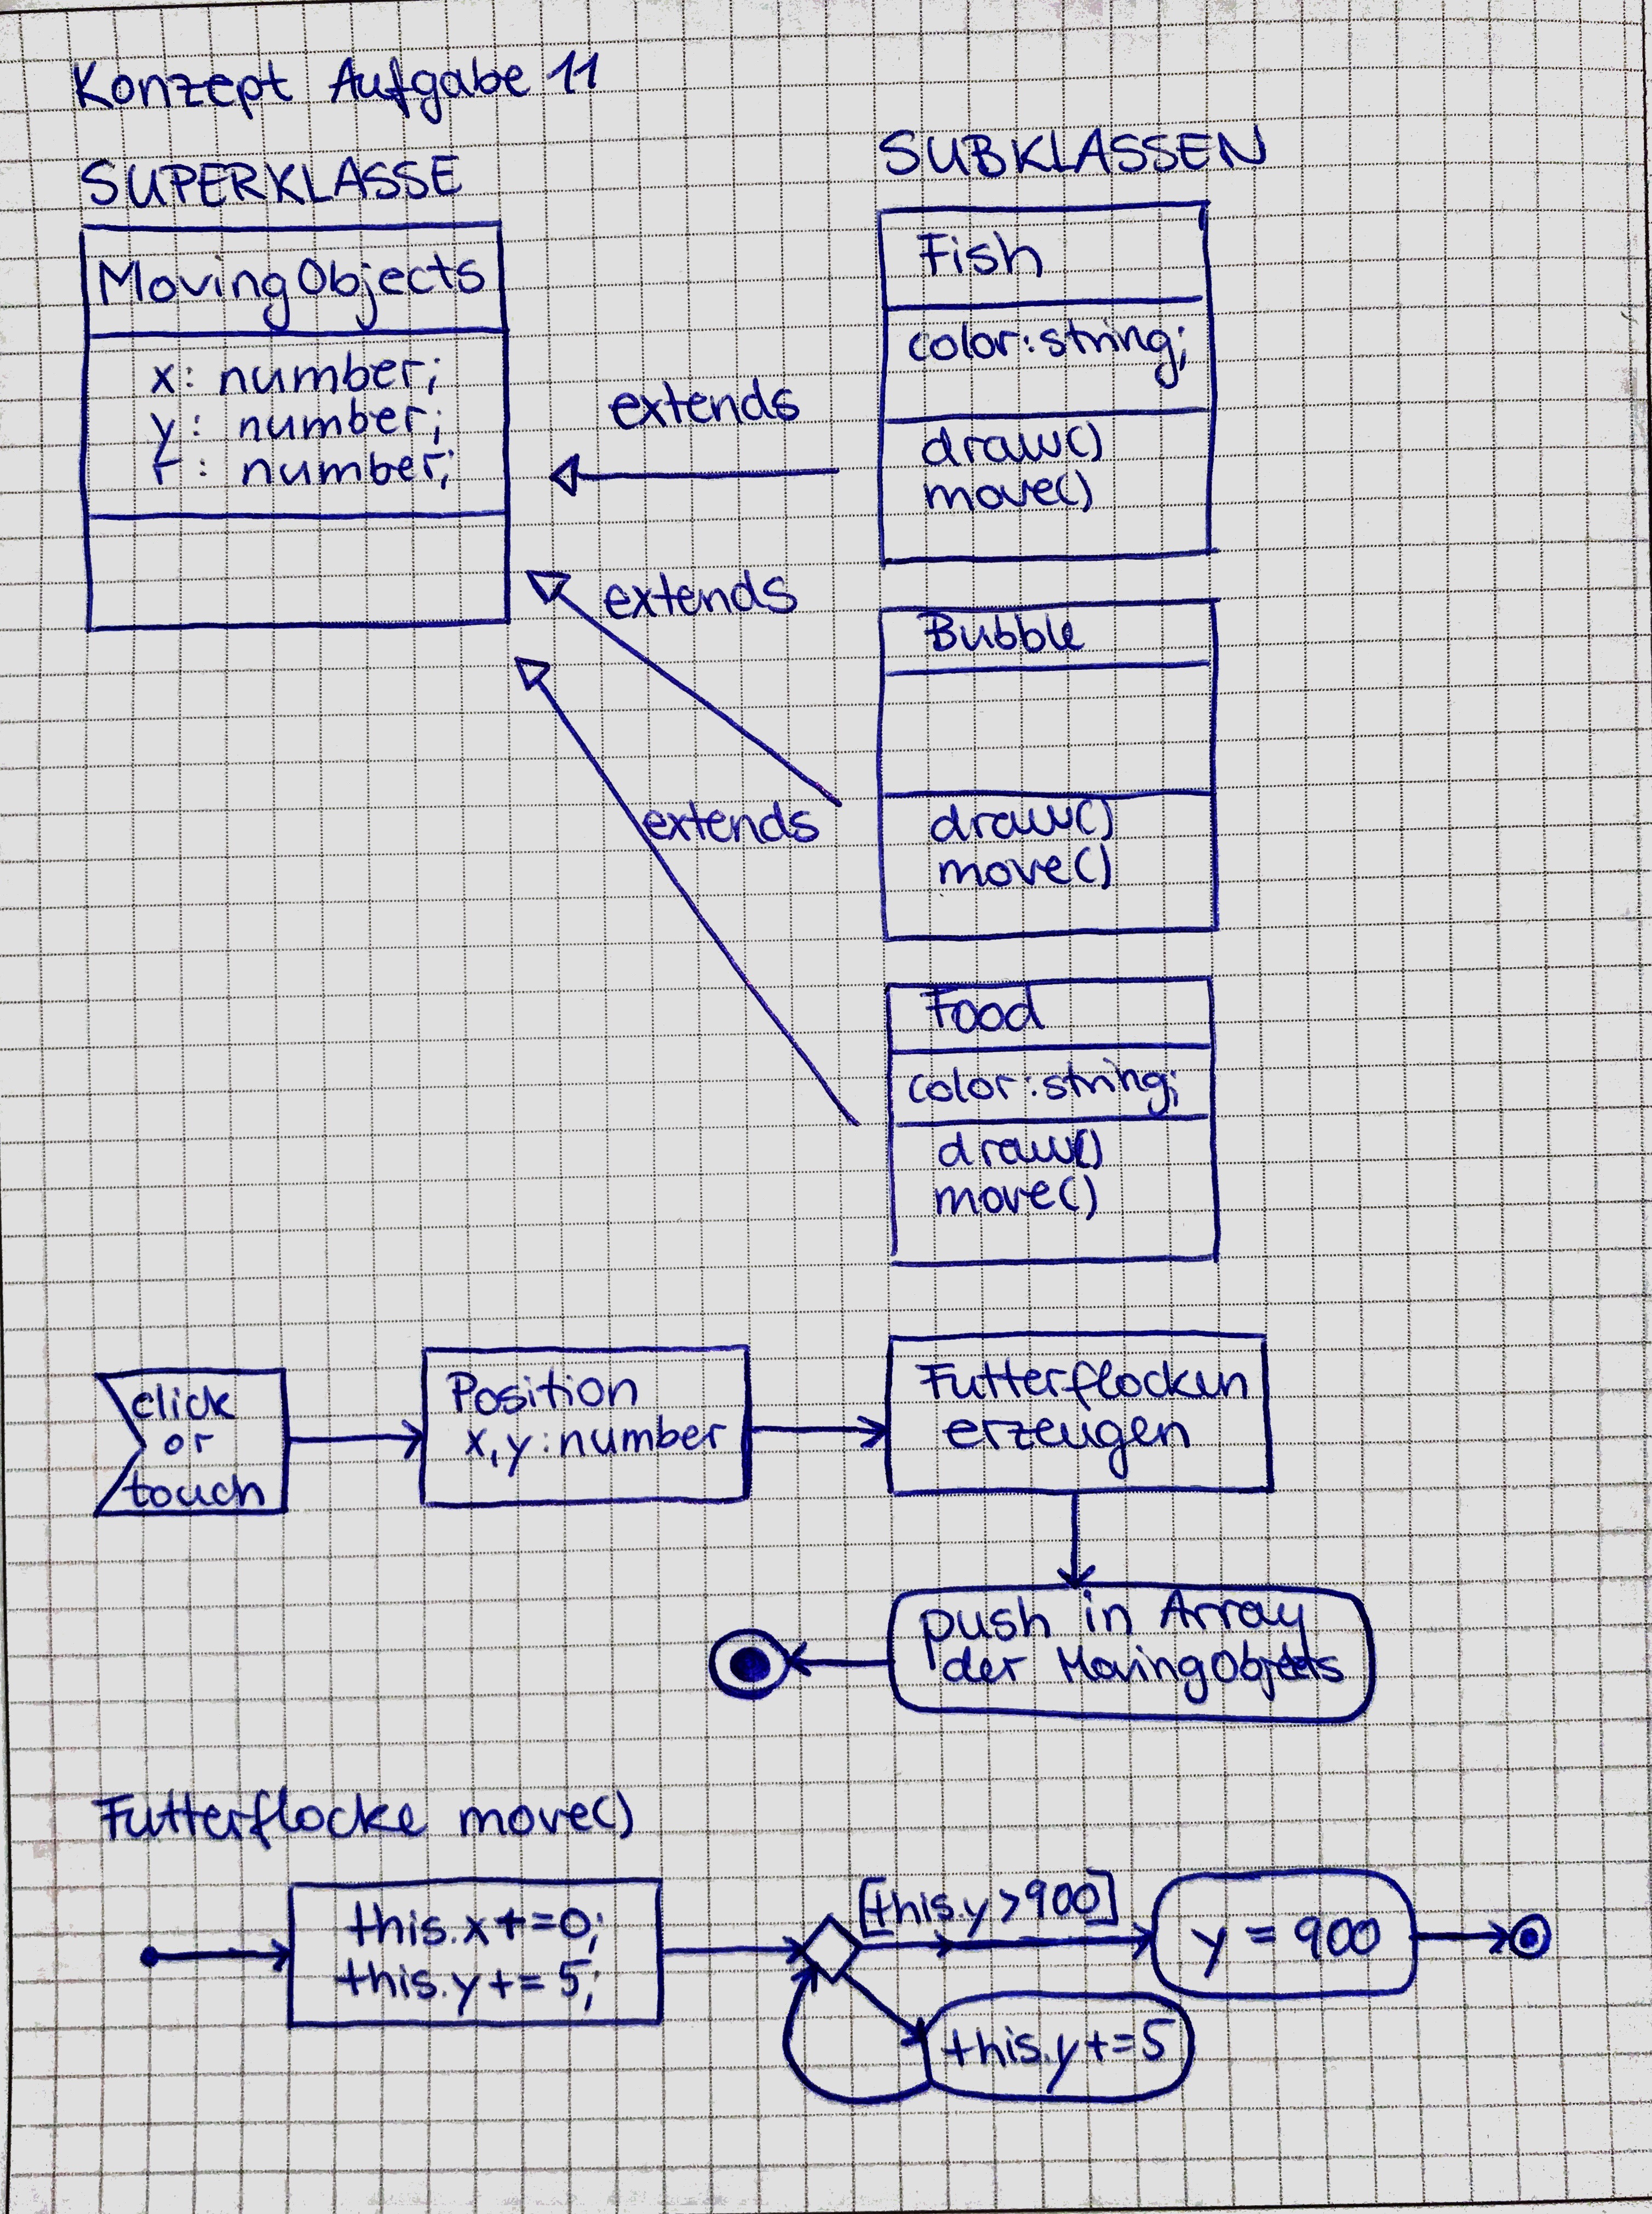 Konzept Aufgabe 11
SUPERKLASSE
MovingObjects
x: number;
y: number;
r: number;
extends
extends
extends
SUBKLASSEN
Fish
color:string;
draw()
move()
Bubble
draw()
move()
Food
color:string;
draw()
move()
click
or
touch
Position
x,y:number
Futterflocken
erzeugen
push in Array
der MovingObjects
Futterflocke move()
this.x+=0;
this.y+=5;
[this.y>900]
y = 900
this.y+=5